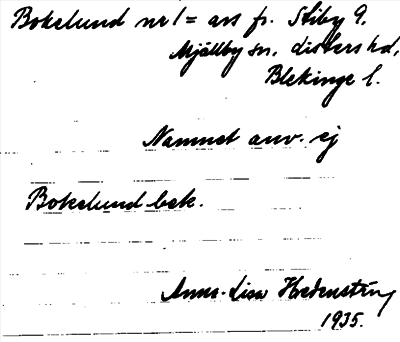 Bokelund nr 1 = avs fr. Stiby 9,
Mjällby sn, Listers hd,
Blekinge l.
Namnet anv. ej
Bokelund bek.
Anna-Lisa Hredenstrüg
1935.